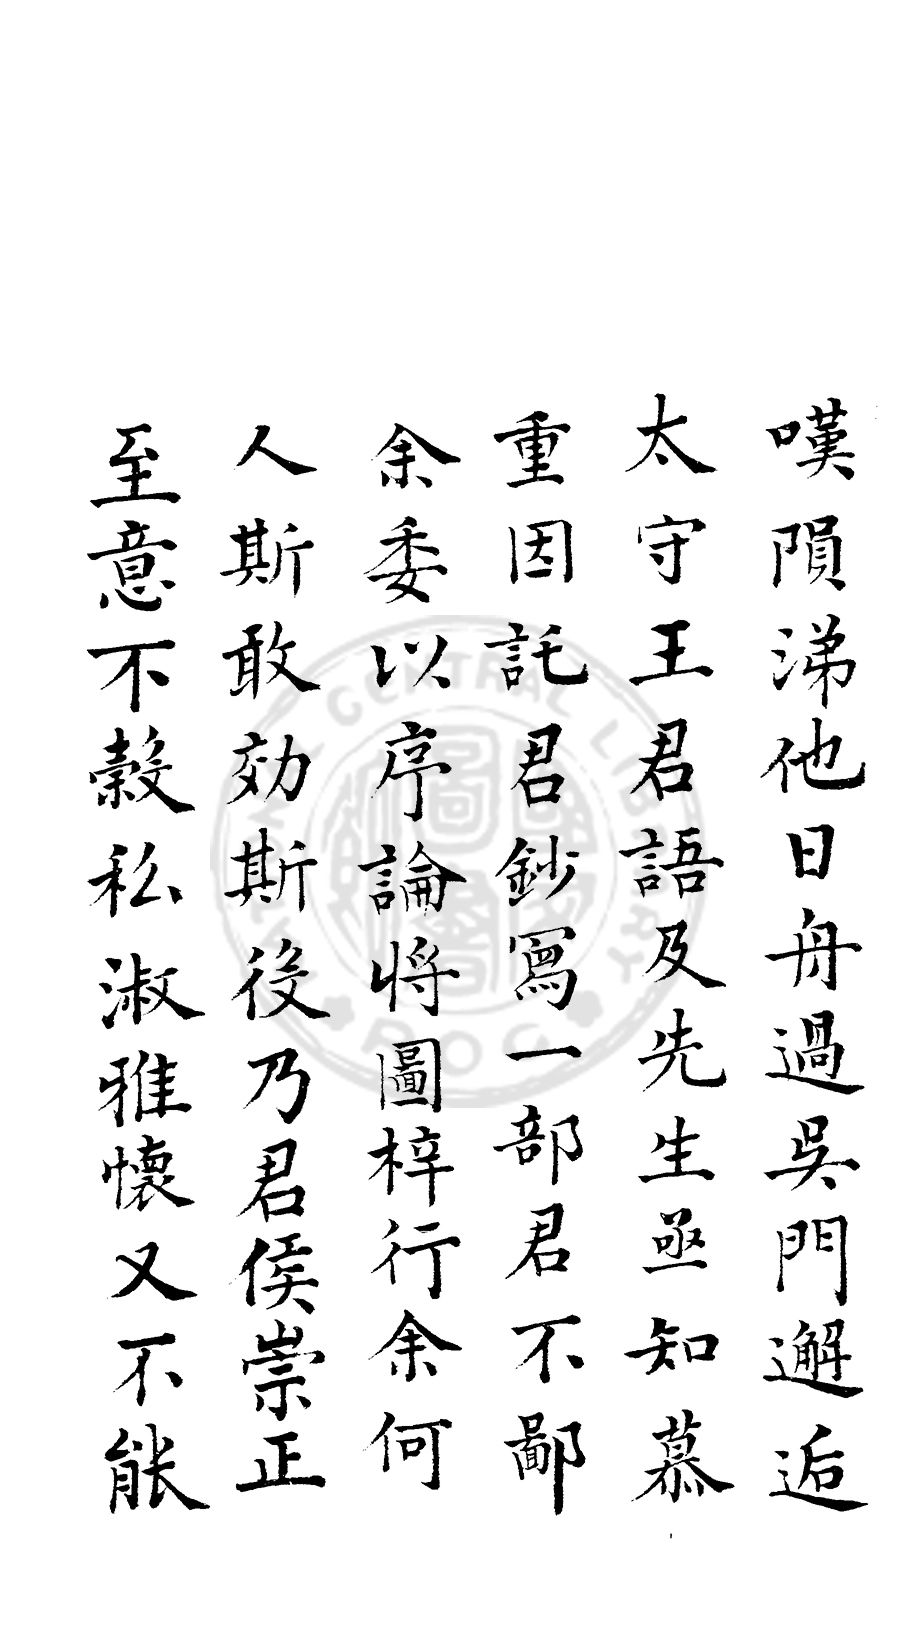 嘆隕涕他日舟過吳門邂逅
太守王君語及先生亟知慕
重因託君鈔寫一部君不鄙
余委以序論將圖梓行余何
人斯敢効斯役乃君侯崇正
至意不穀私淑雅懷又不能